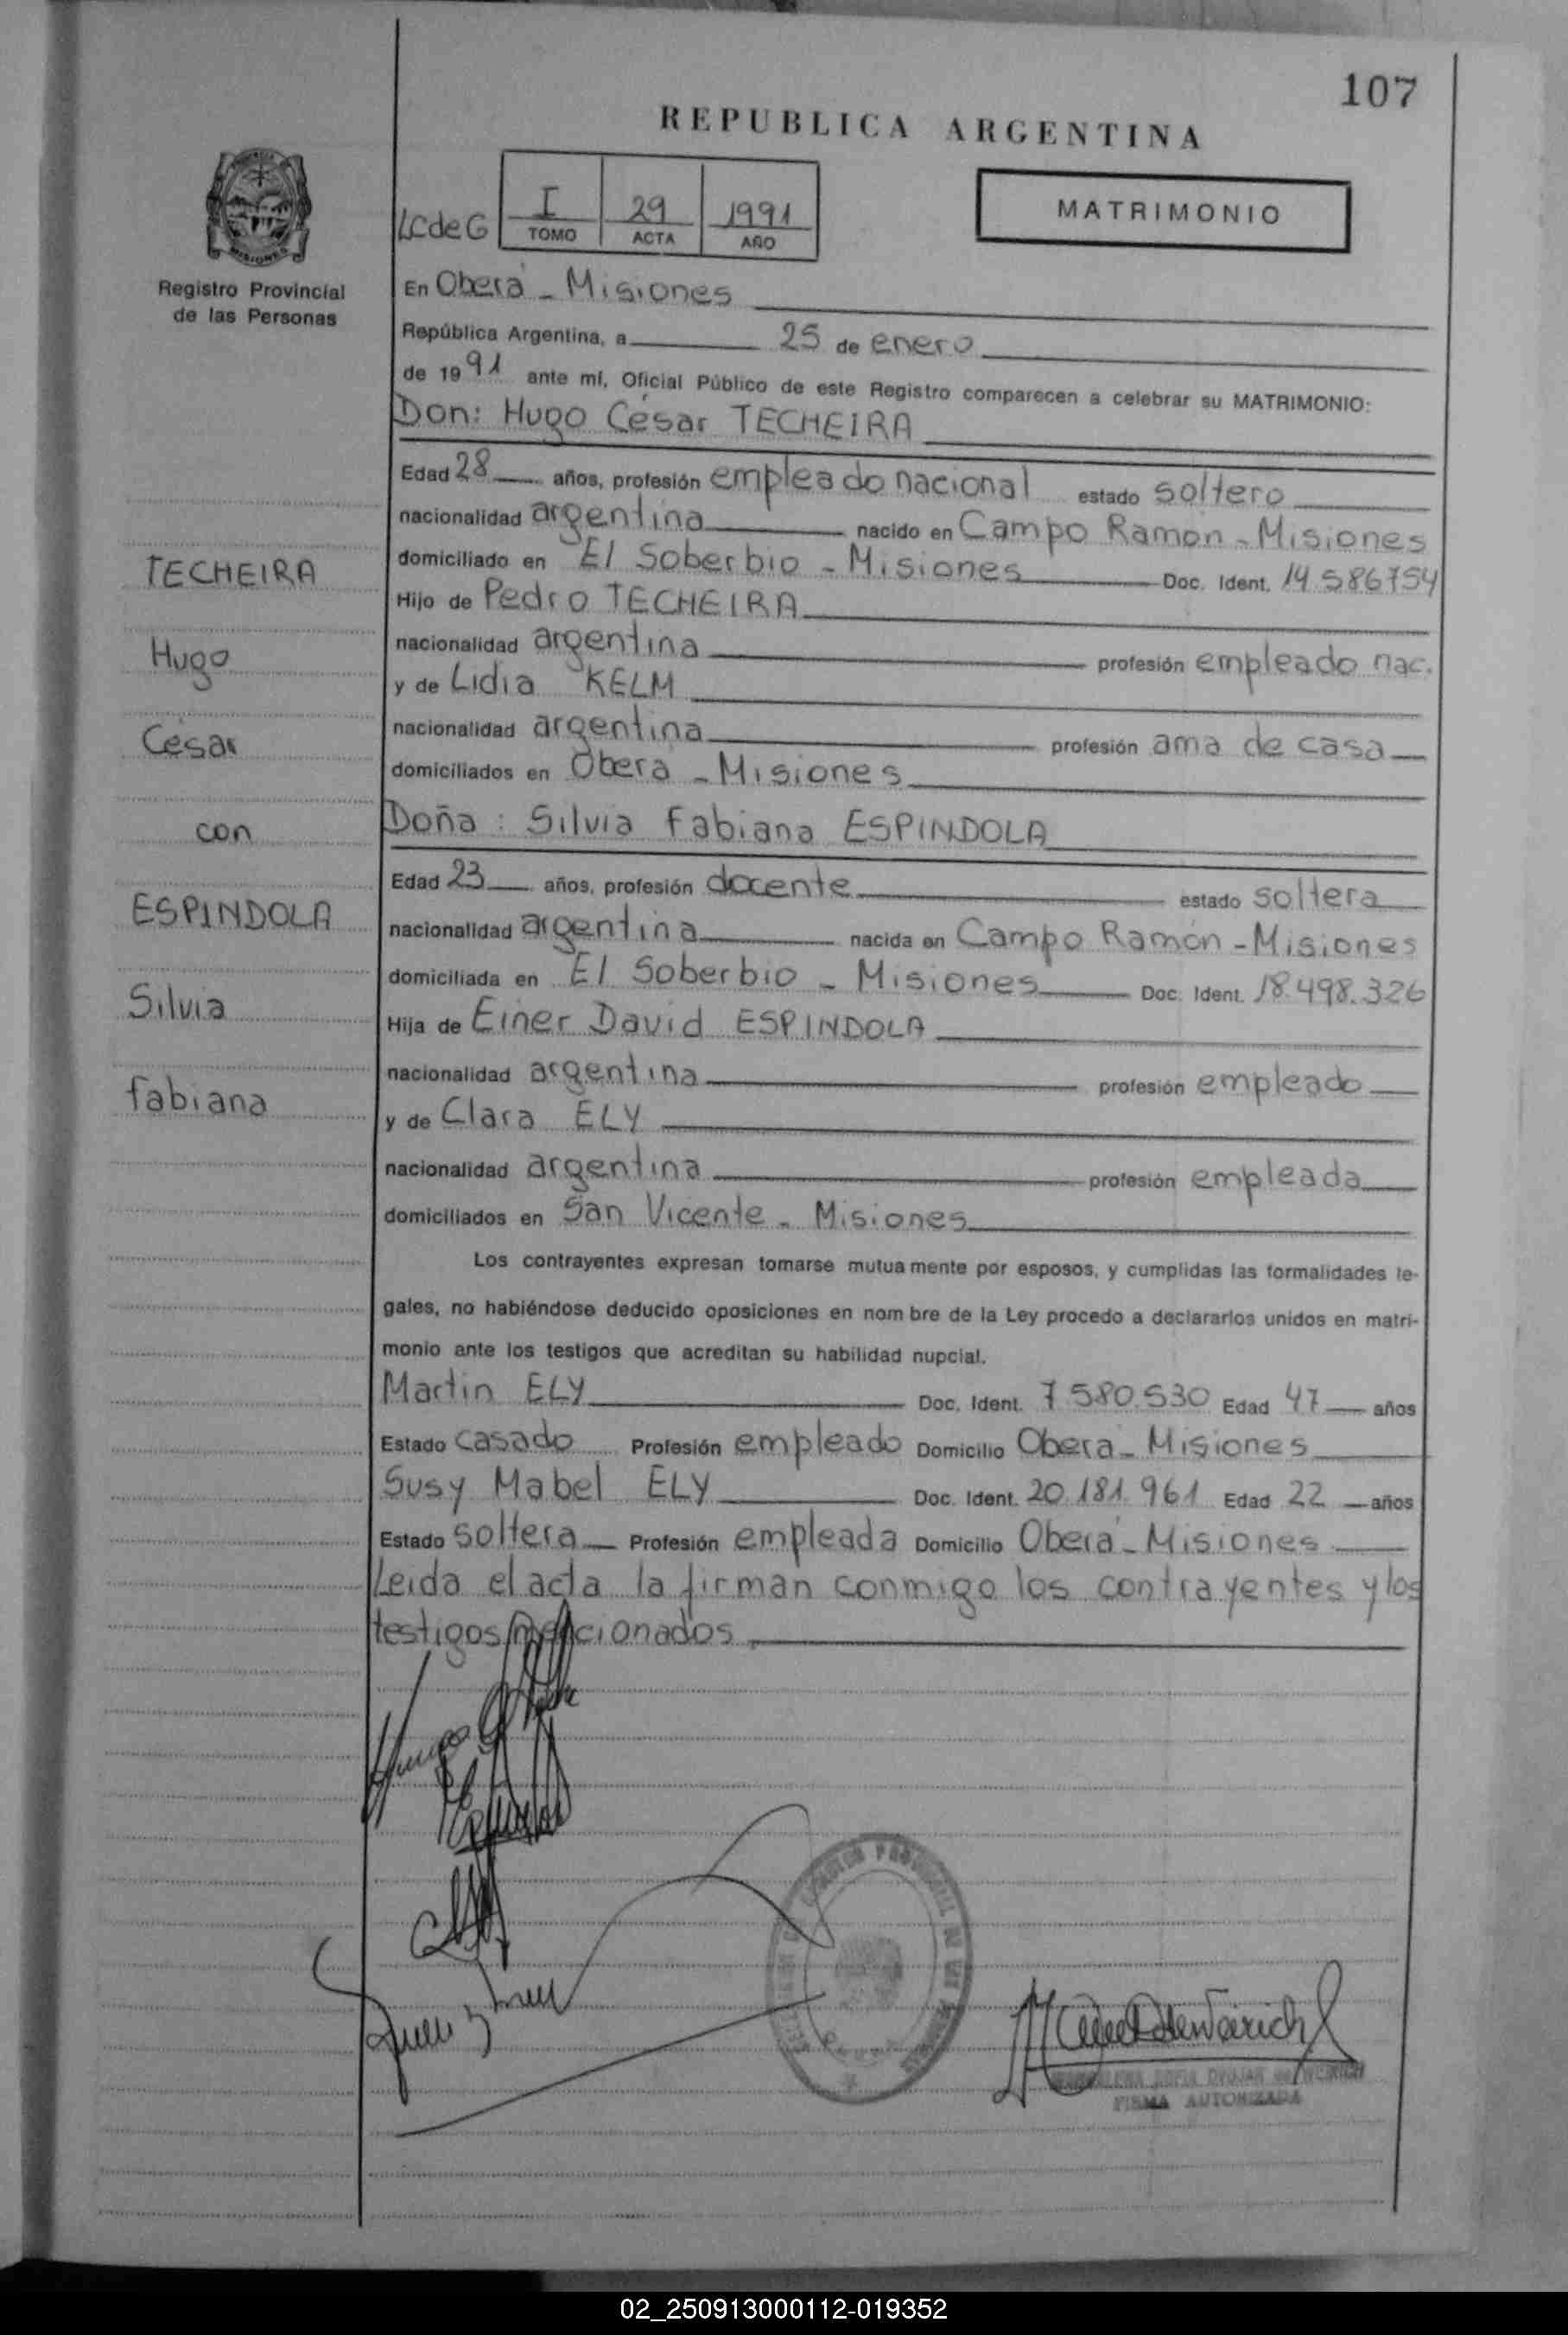 107
REPUBLICA ARGENTINA
MATRIMONIO
LCdeG I 29 1991
TOMO ACTA AÑO
MISIONES
Registro Provincial
de las Personas
En Oberá - Misiones
República Argentina, a 25 de enero
de 1991 ante mí, Oficial Público de este Registro comparecen a celebrar su MATRIMONIO:
Don: Hugo César TECHEIRA
Edad 28 años, profesión empleado nacional estado soltero
nacionalidad argentina nacido en Campo Ramón - Misiones
domiciliado en El Soberbio - Misiones Doc. Ident. 14.586754
Hijo de Pedro TECHEIRA
nacionalidad argentina profesión empleado nac.
y de Lidia KELM
nacionalidad argentina profesión ama de casa
domiciliados en Oberá - Misiones
Doña: Silvia Fabiana ESPINDOLA
Edad 23 años, profesión docente estado soltera
nacionalidad argentina nacida en Campo Ramón - Misiones
domiciliada en El Soberbio - Misiones Doc. Ident. 18.498.326
Hija de Einer David ESPINDOLA
nacionalidad argentina profesión empleado
y de Clara ELY
nacionalidad argentina profesión empleada
domiciliados en San Vicente - Misiones
Los contrayentes expresan tomarse mutuamente por esposos, y cumplidas las formalidades le-
gales, no habiéndose deducido oposiciones en nombre de la Ley procedo a declararlos unidos en matri-
monio ante los testigos que acreditan su habilidad nupcial.
Martin ELY Doc. Ident. 7 580.530 Edad 47 años
Estado casado Profesión empleado Domicilio Oberá - Misiones
Susy Mabel ELY Doc. Ident. 20.181.961 Edad 22 años
Estado soltera Profesión empleada Domicilio Oberá - Misiones
Leida el acta la firman conmigo los contrayentes y los
testigos mencionados
TECHEIRA
Hugo
César
con
ESPINDOLA
Silvia
Fabiana
FIRMA AUTORIZADA
02_250913000112-019352